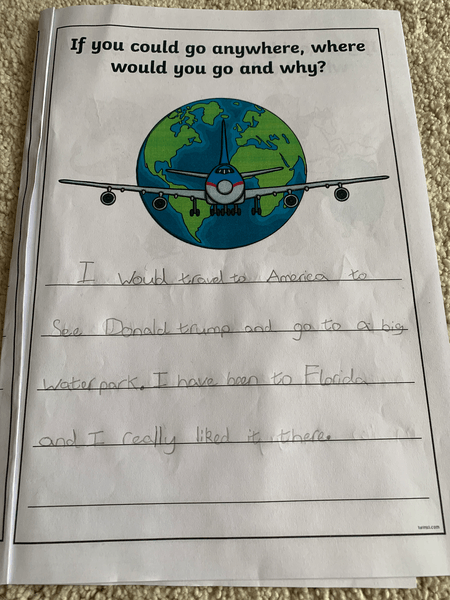 If you could go anywhere, where
would you go and why?
I would travel to America to
See Donald trump and go to a big
water park. I have been to Florida
and I really liked it there.
twinkl.com